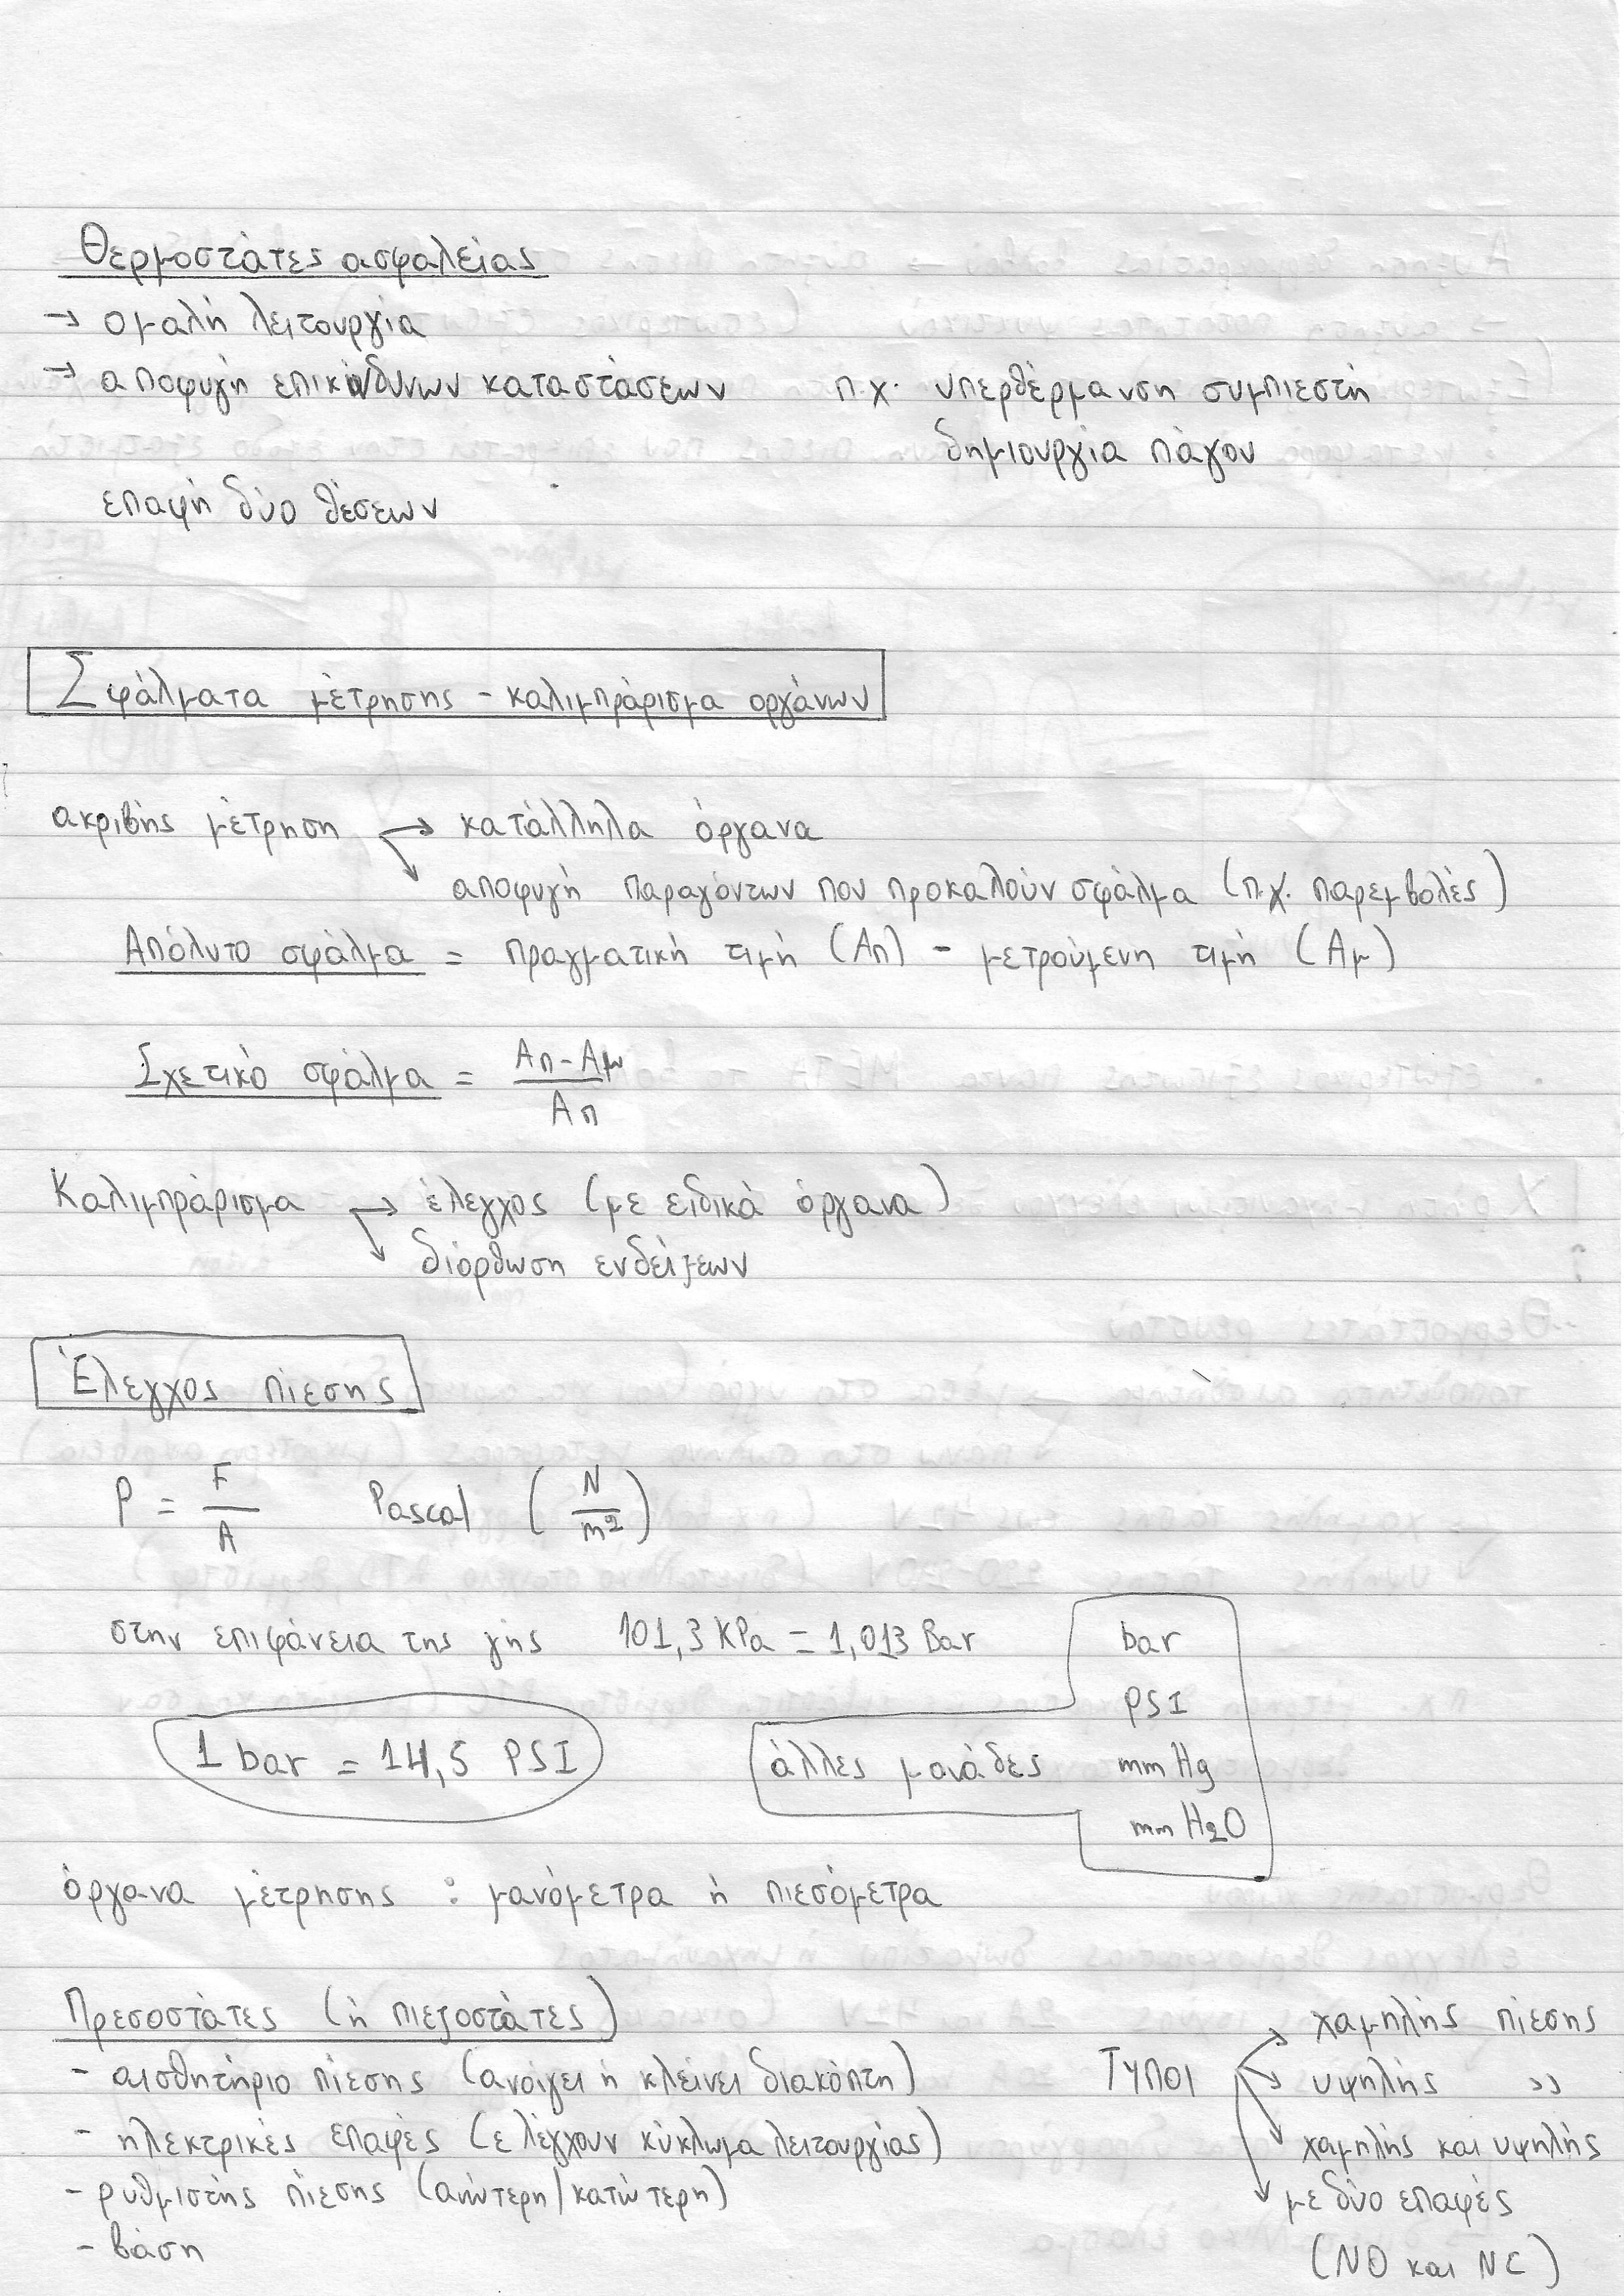 Θερμοστάτες ασφαλείας
→ ομαλή λειτουργία
→ αποφυγή επικίνδυνων καταστάσεων π.χ. υπερθέρμανση συμπιεστή
δημιουργία πάγου
επαφή δύο θέσεων
Σφάλματα μέτρησης - καλιμπράρισμα οργάνων
ακριβής μέτρηση → κατάλληλα όργανα
αποφυγή παραγόντων που προκαλούν σφάλμα (π.χ. παρεμβολές)
Απόλυτο σφάλμα = πραγματική τιμή (Απ) - μετρούμενη τιμή (Αμ)
Σχετικό σφάλμα = Απ - Αμ / Απ
Καλιμπράρισμα → έλεγχος (με ειδικά όργανα)
διόρθωση ενδείξεων
Έλεγχος πίεσης
P = F / A Pascal (N / m²)
στην επιφάνεια της γής 101,3 KPa = 1,013 Bar
1 bar = 14,5 PSI
άλλες μονάδες
bar
PSI
mm Hg
mm H2O
όργανα μέτρησης : μανόμετρα ή πιεσόμετρα
Πρεσοστάτες (ή πιεζοστάτες)
- αισθητήριο πίεσης (ανοίγει ή κλείνει διακόπτη)
- ηλεκτρικές επαφές (ελέγχουν κύκλωμα λειτουργίας)
- ρυθμιστής πίεσης (ανώτερη/κατώτερη)
- βάση
ΤΥΠΟΙ
χαμηλής πίεσης
υψηλής »
χαμηλής και υψηλής
με δύο επαφές
(NO και NC)